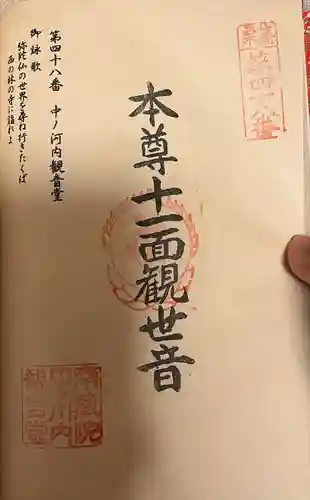 本尊十一面観世音
第四十八番 中ノ河内観音堂
御詠歌
弥陀仏の世界を尋ね行きたくば
西の林の寺に詣れよ
第四十八番